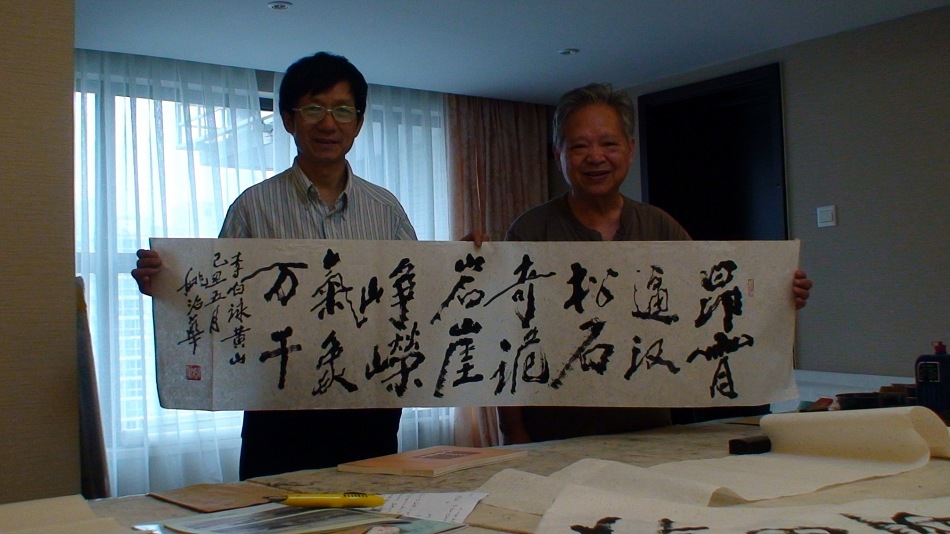 昂霄
逼汉
松石
奇诡
岩崖
峥嶸
氣象
万千
李白咏黄山
己丑五月
姚治華